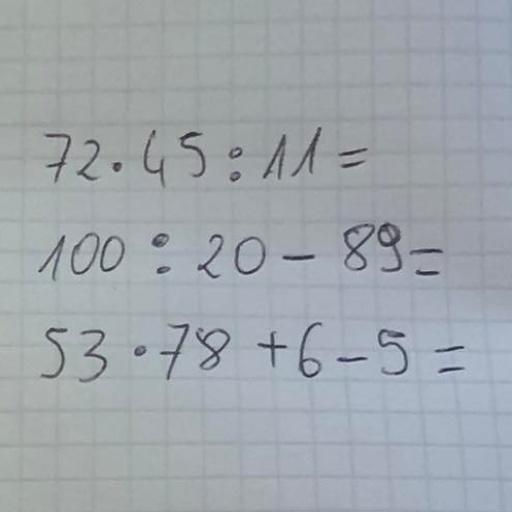 72·45:11=
100:20-89=
53·78+6-5=